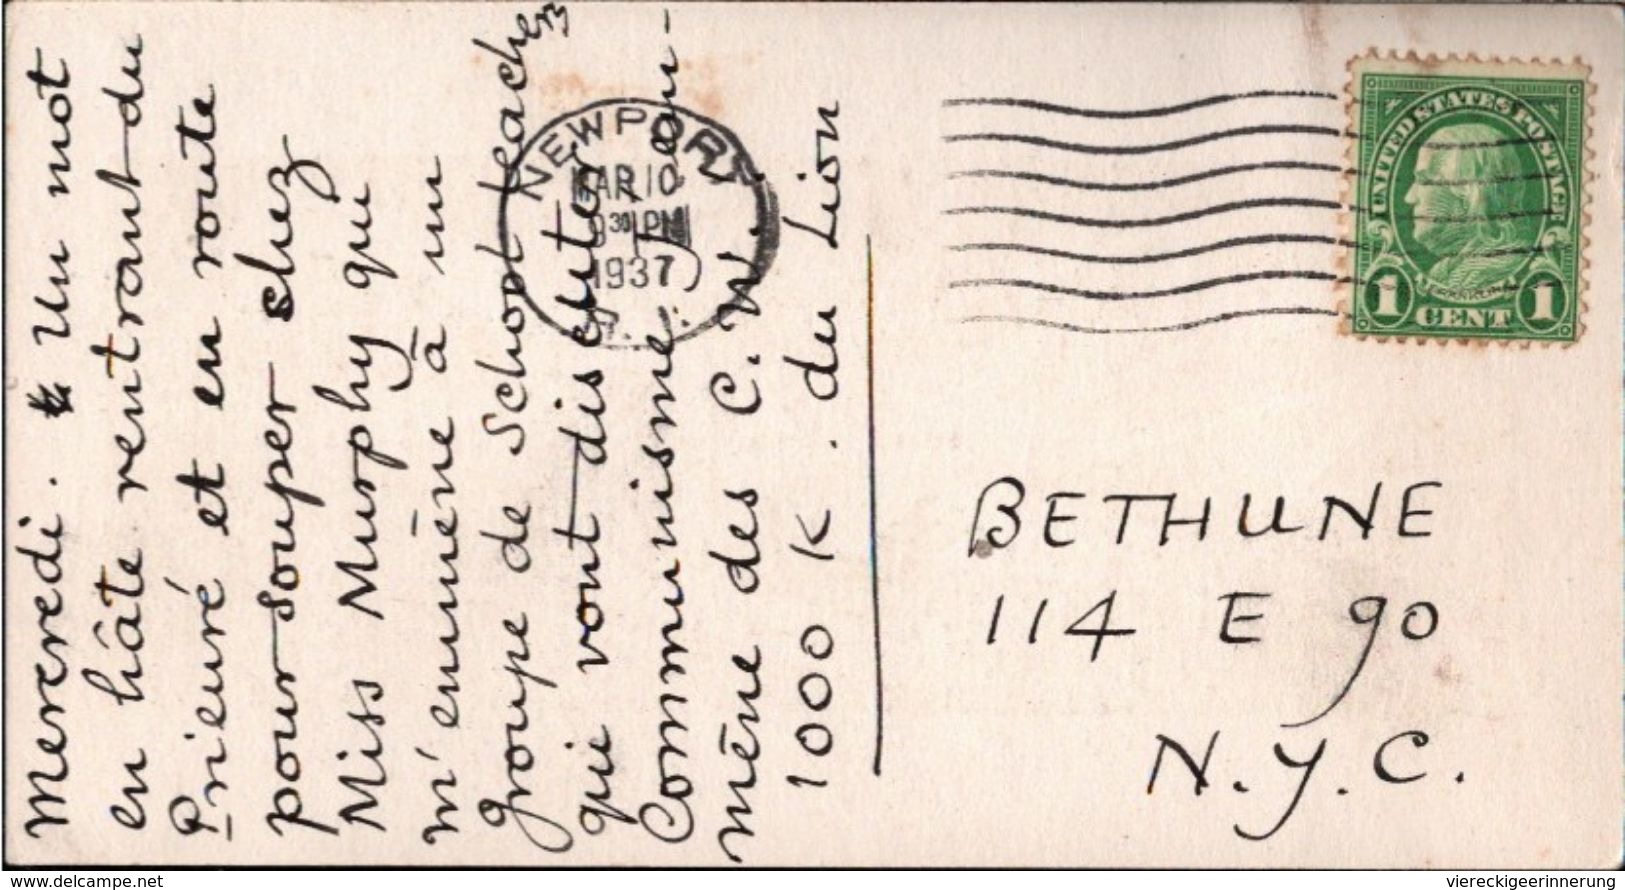 Mercredi. Un mot
en hâte rentrant du
Prieuré et en route
pour souper chez
Miss Murphy qui
m'emmène à un
groupe de School teachers
qui vont discuter
Communisme. J'em-
mène des C. W.
1000 K. du Lion
NEWPORT
MAR 10
930 PM
1937
UNITED STATES POSTAGE
FRANKLIN
1 CENT 1
BETHUNE
114 E 90
N.Y.C.
delcampe.net
viereckigeerinnerung